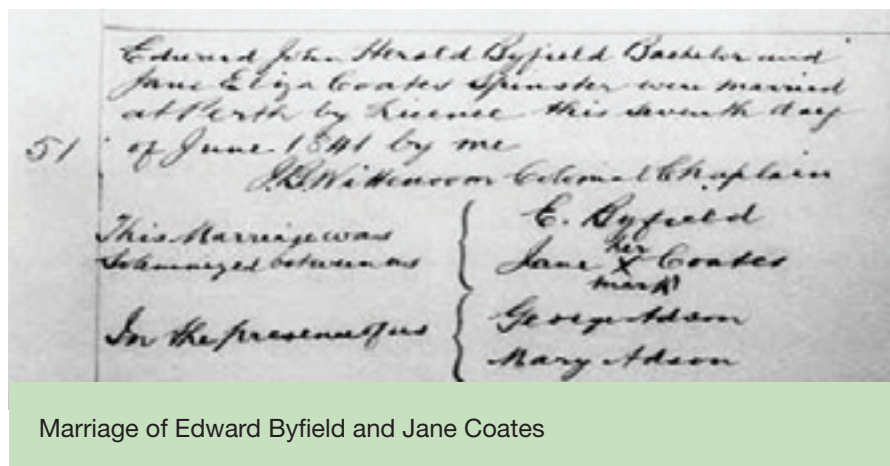 Edward John Herald Byfield Bachelor and
Jane Eliza Coates Spinster were married
at Perth by License this seventh day
51 of June 1841 by me
J.B. Wittenoom Colonial Chaplain
This Marriage was
Solemnized between us
E. Byfield
Jane her X mark Coates
In the presence of us
George Adson
Mary Adson
Marriage of Edward Byfield and Jane Coates